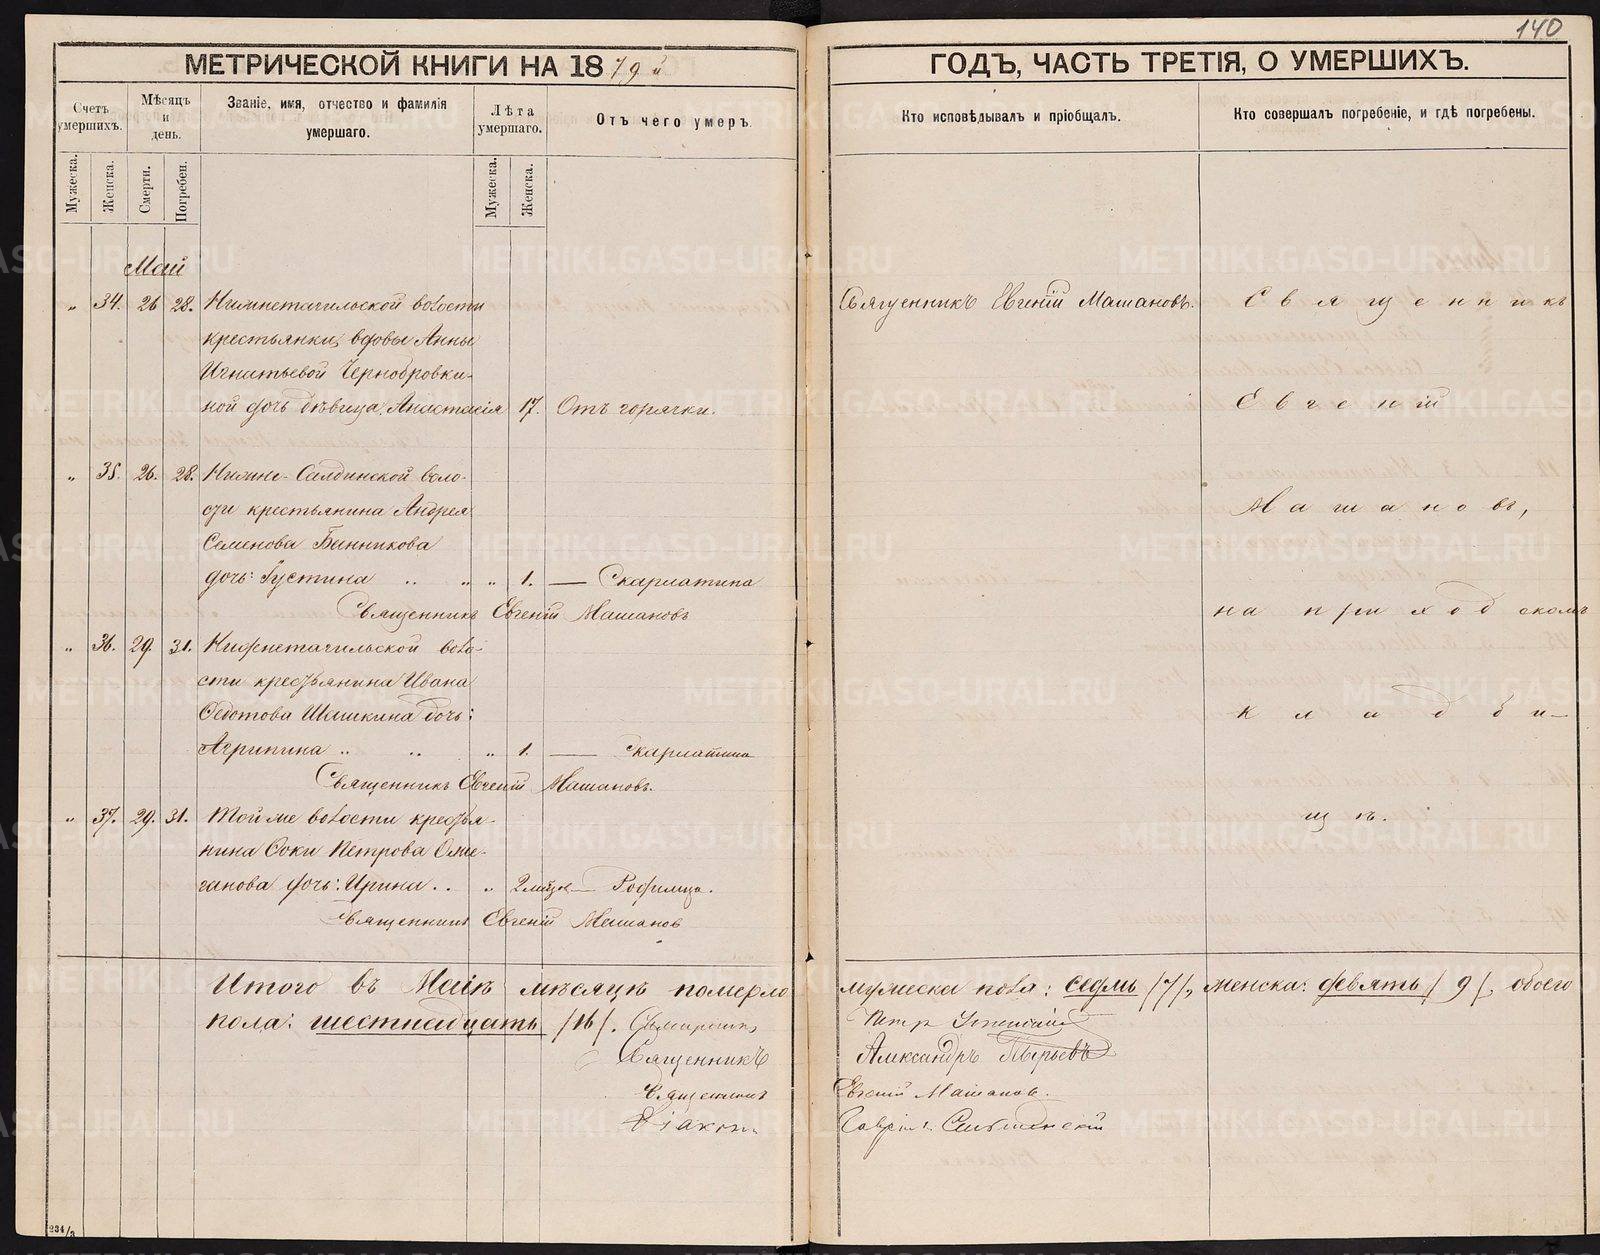 140
МЕТРИЧЕСКОЙ КНИГИ НА 1879 й
ГОДЪ, ЧАСТЬ ТРЕТІЯ, О УМЕРШИХЪ.
Счетъ умершихъ.
Мѣсяцъ и день.
Званіе, имя, отчество и фамилія умершаго.
Лѣта умершаго.
Отъ чего умеръ.
Кто исповѣдывалъ и пріобщалъ.
Кто совершалъ погребеніе, и гдѣ погребены.
Мужеска.
Женска.
Смерти.
Погребен.
Мужеска.
Женска.
Май
„ 34. 26 28. Нижнетагильской волости
крестьянки, вдовы Анны
Игнатьевой Чернобровки-
ной дочь дѣвица, Анастасія 17. Отъ горячки.
Священникъ Евгеній Машановъ.
„ 35. 26. 28. Нижне-Салдинской воло-
сти крестьянина Андрея
Семенова Банникова
дочь: Густина „ „ „ 1. — Скарлатина
Священникъ Евгеній Машановъ
„ 36. 29. 31. Нижнетагильской воло-
сти крестьянина Ивана
Федотова Шашкина дочь:
Агрипина „ „ „ 1. — Скарлатина
Священникъ Евгеній Машановъ.
„ 37. 29. 31. Той же волости крестья-
нина Фоки Петрова Оже-
ганова дочь: Ирина „ „ 2 мѣс — Родимца.
Священникъ Евгеній Машановъ
Священникъ
Евгеній
Машановъ,
на приходскомъ
кладби-
щѣ.
Итого въ Маѣ мѣсяцѣ померло мужеска пола: седмь /7/, женска: девять /9/, обоего
пола: шестнадцать /16/.
Священникъ Александръ
Священникъ Евгеній Машановъ.
Діаконъ
METRIKI.GASO-URAL.RU